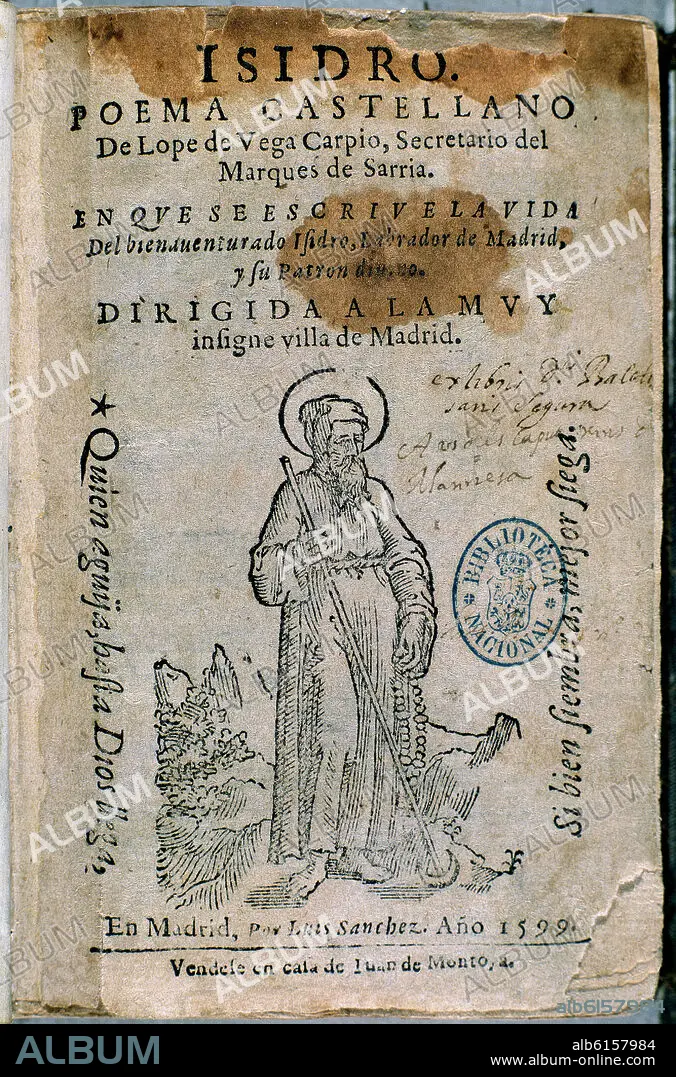 ISIDRO.
POEMA CASTELLANO
De Lope de Vega Carpio, Secretario del
Marques de Sarria.
EN QVE SE ESCRIVE LA VIDA
Del bienauenturado Isidro, Labrador de Madrid,
y su Patron diuino.
DIRIGIDA A LA MVY
insigne villa de Madrid.
ex libris
Segura
★ Quien aguija, hasta Dios llega,
Si bien siembra, mejor siega.
BIBLIOTECA
NACIONAL
En Madrid, Por Luis Sanchez. Año 1599.
Vendese en casa de Iuan de Montoya.
ALBUM
alb6157984
www.album-online.com